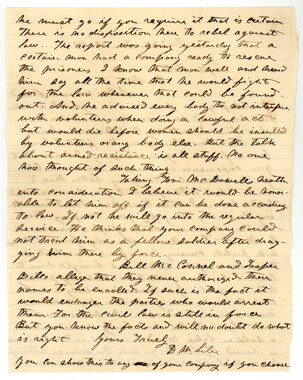 He must go if you require it that is certain
There is no disposition here to rebel against
law. The report was going yesterday that a
certain man had a company ready to rescue
the prisoners I know that man well and heard
him say all the time that he would fight
for the law whenever that could be found
out And he advised every body to not interfere
with volunteers when doing a lawful act
but would die before women should be insulted
by volunteers or any body else. But the talk
about armed resistance is all stuff. No one
has thought of such thing
Taking Jon McDowell
into consideration I believe it would be honor-
able to let him off if it can be done according
to law. If not he will go into the regular
service. He thinks that your company could
not treat him as a fellow soldier after drag-
ging him there by force.
Bill McConnel and Jasper
Bills allege that they never authorised their
names to be enrolled. If such is the fact it
would endanger the parties who would arrest
them. For the civil law is still in force
But you know the facts and will no doubt do what
is right Yours Truly
D M
You can show this to any of your company if you choose